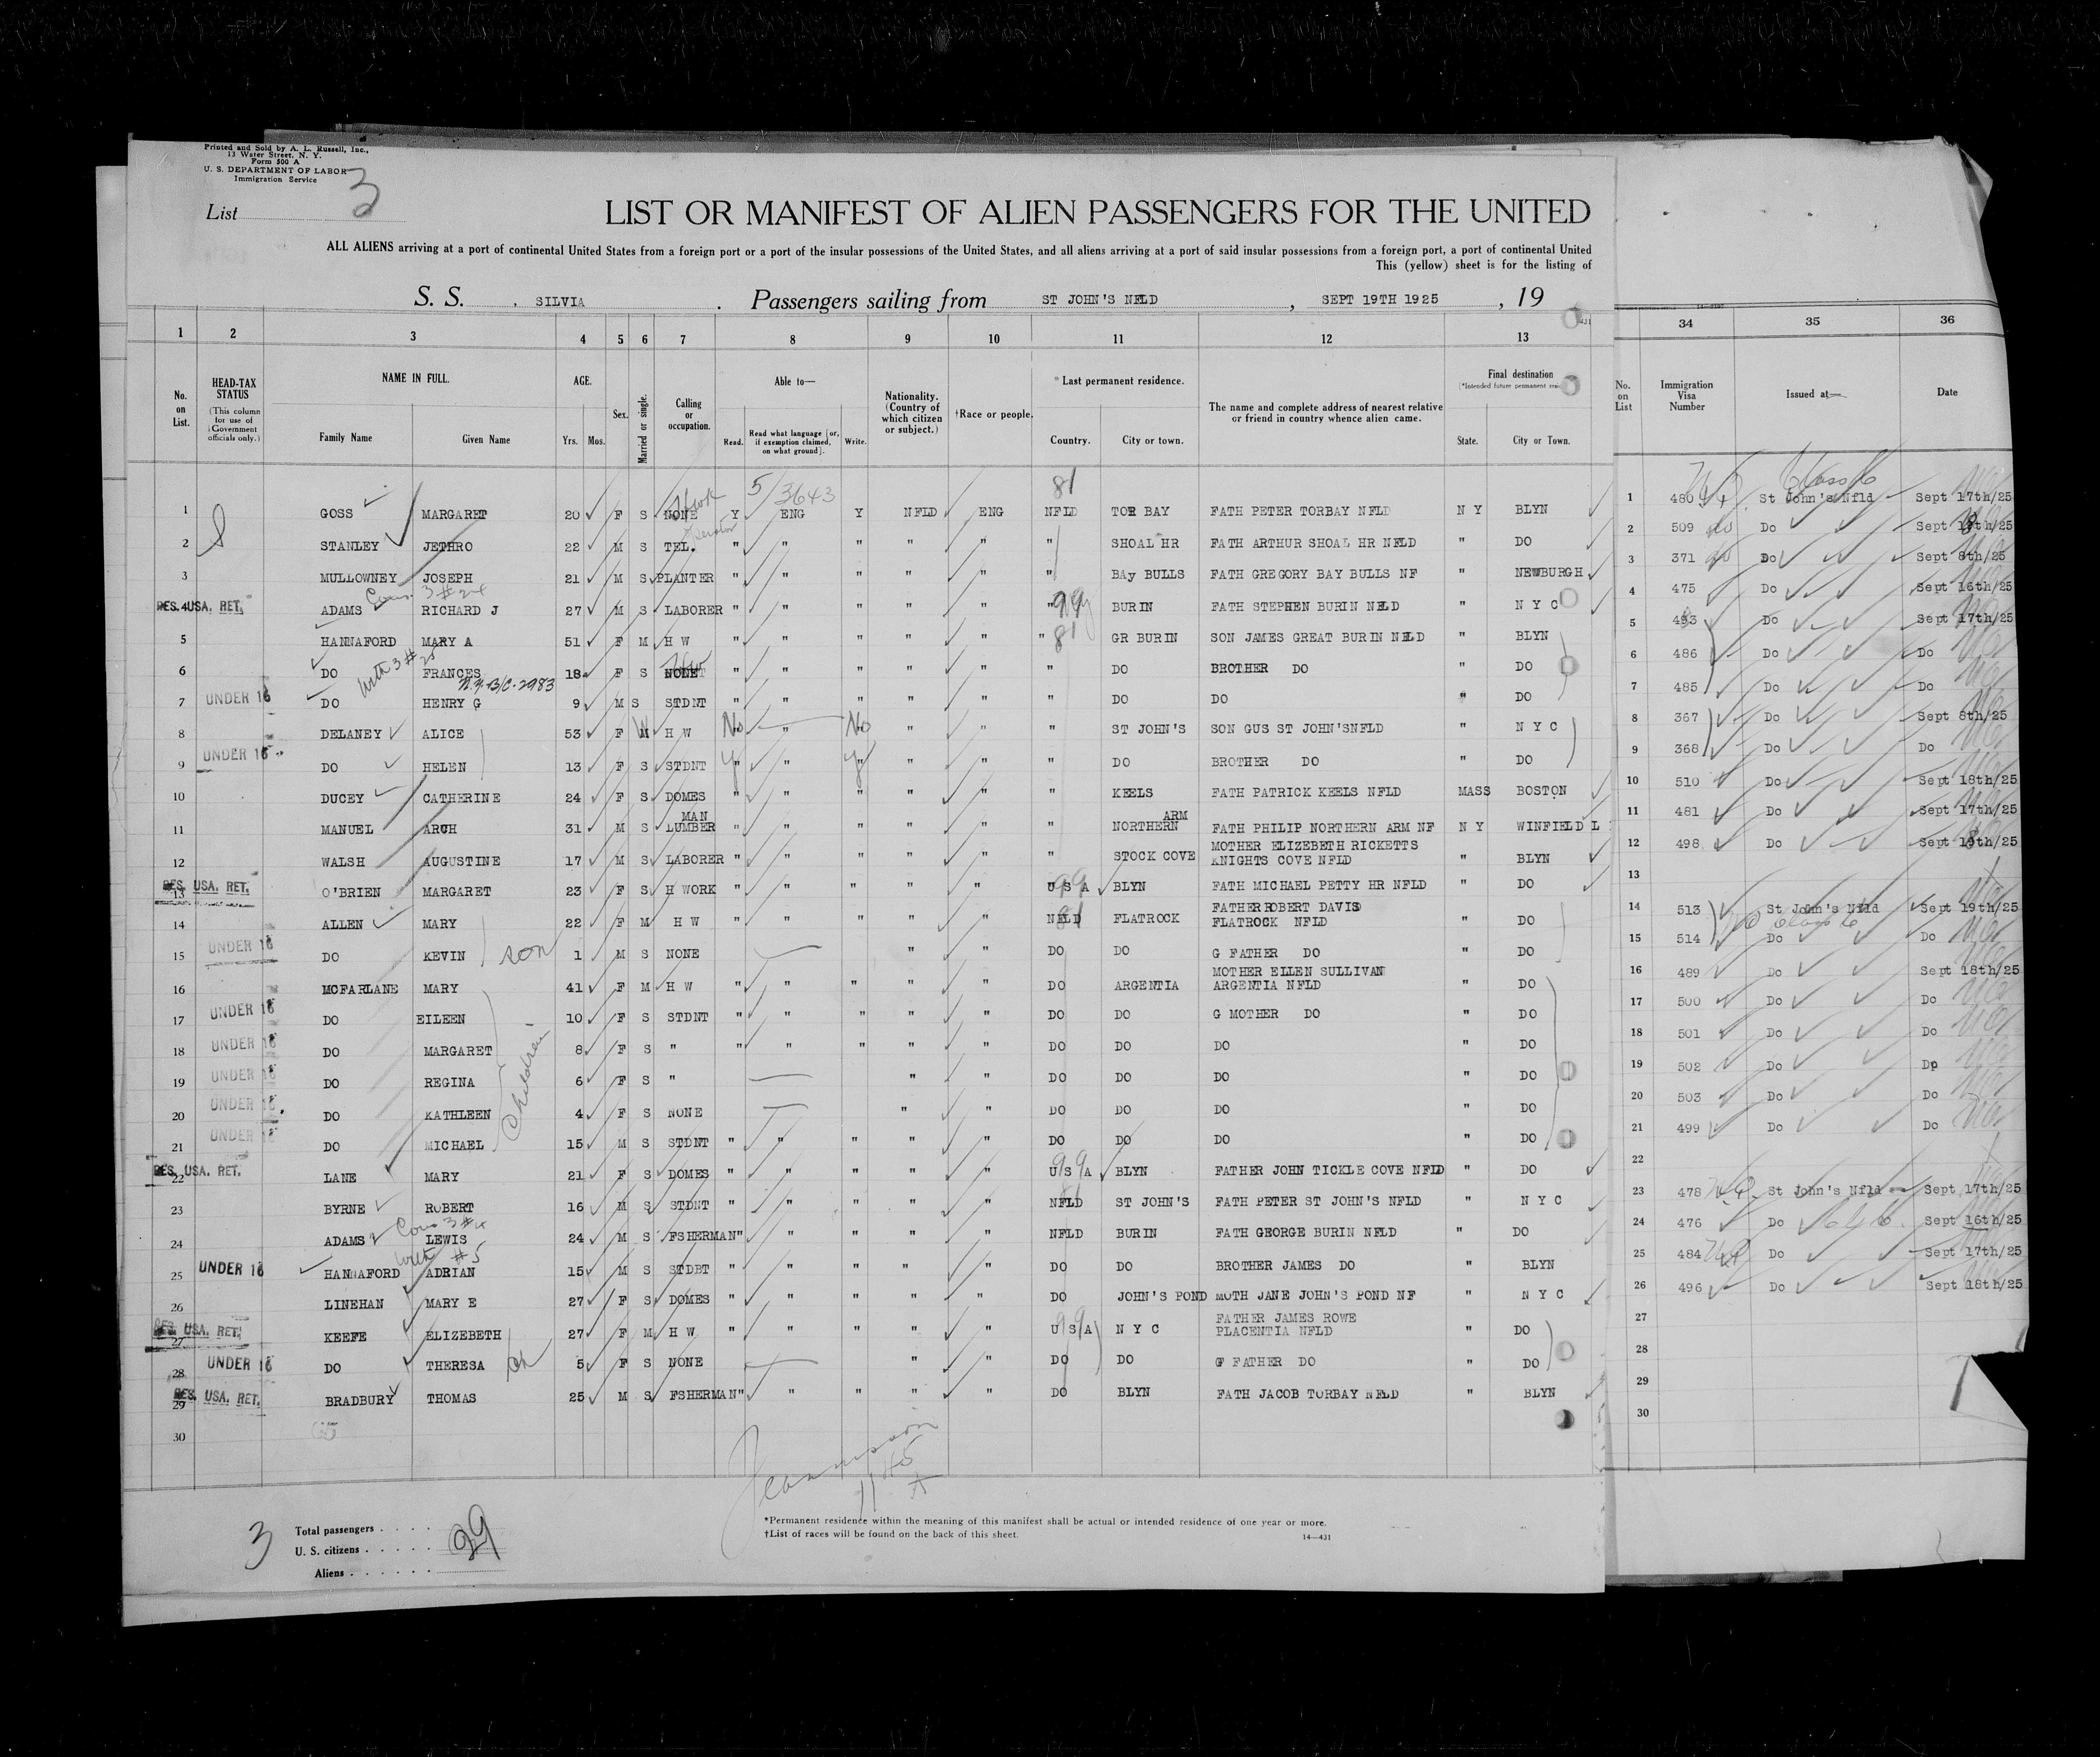 Printed and Sold by A. L. Russell, Inc.,
13 Water Street, N. Y.
Form 500 A
U. S. DEPARTMENT OF LABOR
Immigration Service
List 3
LIST OR MANIFEST OF ALIEN PASSENGERS FOR THE UNITED
ALL ALIENS arriving at a port of continental United States from a foreign port or a port of the insular possessions of the United States, and all aliens arriving at a port of said insular possessions from a foreign port, a port of continental United
This (yellow) sheet is for the listing of
S. S. SILVIA . Passengers sailing from ST JOHN'S NFLD , SEPT 19TH 1925 , 19
1 2 3 4 5 6 7 8 9 10 11 12 13 34 35 36
No. on List. HEAD-TAX STATUS (This column for use of Government officials only.) NAME IN FULL. Family Name Given Name AGE. Yrs. Mos. Sex. Married or single. Calling or occupation. Able to— Read. Read what language [or, if exemption claimed, on what ground]. Write. Nationality. (Country of which citizen or subject.) †Race or people. *Last permanent residence. Country. City or town. The name and complete address of nearest relative or friend in country whence alien came. Final destination State. City or Town. No. on List Immigration Visa Number Issued at— Date
5/3643 81
1 GOSS MARGARET 20 F S NONE Y ENG Y NFLD ENG NFLD TOR BAY FATH PETER TORBAY NFLD N Y BLYN 1 480 St John's Nfld Sept 17th/25
2 STANLEY JETHRO 22 M S TEL. " " " " " " SHOAL HR FATH ARTHUR SHOAL HR NFLD " DO 2 509 Do Sept 19th/25
3 MULLOWNEY JOSEPH 21 M S PLANTER " " " " " " BAy BULLS FATH GREGORY BAY BULLS NF " NEWBURGH 3 371 Do Sept 8th/25
Cous. 3 #24
RES. 4 USA. RET. ADAMS RICHARD J 27 M S LABORER " " " " " " 99 BURIN FATH STEPHEN BURIN NFLD " N Y C 4 475 Do Sept 16th/25
5 HANNAFORD MARY A 51 F M H W " " " " " " 81 GR BURIN SON JAMES GREAT BURIN NFLD " BLYN 5 493 Do Sept 17th/25
With 3 # 25
6 DO FRANCES 18 F S NONE " " " " " " DO BROTHER DO " DO 6 486 Do Do
N.Y. B/C-2983
7 UNDER 16 DO HENRY G 9 M S STDNT " " " " " " DO DO " DO 7 485 Do Do
8 DELANEY ALICE 53 F W H W No " No " " " ST JOHN'S SON GUS ST JOHN'SNFLD " N Y C 8 367 Do Sept 8th/25
9 UNDER 16 DO HELEN 13 F S STDNT y " y " " " DO BROTHER DO " DO 9 368 Do Do
10 DUCEY CATHERINE 24 F S DOMES " " " " " " KEELS FATH PATRICK KEELS NFLD MASS BOSTON 10 510 Do Sept 18th/25
11 MANUEL ARCH 31 M S LUMBER MAN " " " " " " NORTHERN ARM FATH PHILIP NORTHERN ARM NF N Y WINFIELD L 11 481 Do Sept 17th/25
12 WALSH AUGUSTINE 17 M S LABORER " " " " " " STOCK COVE MOTHER ELIZEBETH RICKETTS KNIGHTS COVE NFLD " BLYN 12 498 Do Sept 19th/25
RES. 13 USA. RET. O'BRIEN MARGARET 23 F S H WORK " " " " " U S A 99 BLYN FATH MICHAEL PETTY HR NFLD " DO 13
14 ALLEN MARY 22 F M H W " " " " " NFLD 81 FLATROCK FATHER ROBERT DAVIS FLATROCK NFLD " DO 14 513 St John's Nfld Sept 19th/25
15 UNDER 16 DO KEVIN son 1 M S NONE " " DO DO G FATHER DO " DO 15 514 Do Do
16 MCFARLANE MARY 41 F M H W " " " " " DO ARGENTIA MOTHER ELLEN SULLIVAN ARGENTIA NFLD " DO 16 489 Do Sept 18th/25
17 UNDER 16 DO EILEEN 10 F S STDNT " " " " " DO DO G MOTHER DO " DO 17 500 Do Do
18 UNDER 16 DO MARGARET 8 F S " " " " " " DO DO DO " DO 18 501 Do Do
Children
19 UNDER 16 DO REGINA 6 F S " " " DO DO DO " DO 19 502 Do Do
20 UNDER 16 DO KATHLEEN 4 F S NONE " " DO DO DO " DO 20 503 Do Do
21 UNDER 16 DO MICHAEL 15 M S STDNT " " " " " DO DO DO " DO 21 499 Do Do
RES. 22 USA. RET. LANE MARY 21 F S DOMES " " " " " U S A 99 BLYN FATHER JOHN TICKLE COVE NFLD " DO 22
23 BYRNE ROBERT 16 M S STDNT " " " " " NFLD 81 ST JOHN'S FATH PETER ST JOHN'S NFLD " N Y C 23 478 St John's Nfld Sept 17th/25
Cous 3 #4
24 ADAMS LEWIS 24 M S FSHERMAN " " " " " NFLD BURIN FATH GEORGE BURIN NFLD " DO 24 476 Do Sept 16th/25
With #5
25 UNDER 16 HANNAFORD ADRIAN 15 M S STDBT " " " " " DO DO BROTHER JAMES DO " BLYN 25 484 Do Sept 17th/25
26 LINEHAN MARY E 27 F S DOMES " " " " " DO JOHN'S POND MOTH JANE JOHN'S POND NF " N Y C 26 496 Do Sept 18th/25
RES. 27 USA. RET. KEEFE ELIZEBETH 27 F M H W " " " " " U S A 99 N Y C FATHER JAMES ROWE PLACENTIA NFLD " DO 27
28 UNDER 16 DO THERESA ch 5 F S NONE " " DO DO G FATHER DO " DO 28
RES. 29 USA. RET. BRADBURY THOMAS 25 M S FSHERMAN " " " " " DO BLYN FATH JACOB TORBAY NFLD " BLYN 29
30 30
1145 A
3 Total passengers . . . .
U. S. citizens . . . . . 29
Aliens . . . . . .
*Permanent residence within the meaning of this manifest shall be actual or intended residence of one year or more.
†List of races will be found on the back of this sheet. 14—431